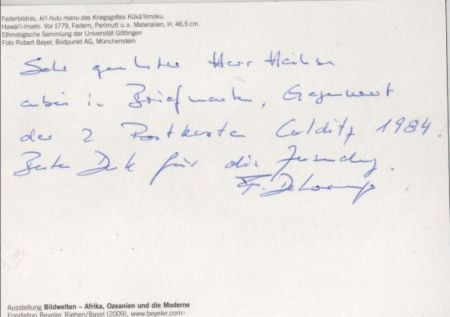 Federbildnis, ki'i hulu manu des Kriegsgottes Kūkā'ilimoku.
Hawai'i-Inseln. Vor 1779, Federn, Perlmutt u.a. Materialien, H. 46,5 cm.
Ethnologische Sammlung der Universität Göttingen
Foto Robert Bayer, Bildpunkt AG, Münchenstein
Sehr geehrter Herr
anbei in Briefmarken, Gegenwert
der 2 Postkarten Colditz 1984.
Besten Dank für die Zusendg.
Ausstellung Bildwelten – Afrika, Ozeanien und die Moderne
Fondation Beyeler, Riehen/Basel (2009), www.beyeler.com